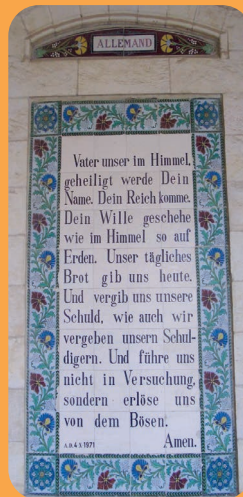 ALLEMAND
Vater unser im Himmel,
geheiligt werde Dein
Name. Dein Reich komme.
Dein Wille geschehe
wie im Himmel so auf
Erden. Unser tägliches
Brot gib uns heute.
Und vergib uns unsere
Schuld, wie auch wir
vergeben unsern Schul-
digern. Und führe uns
nicht in Versuchung,
sondern erlöse uns
von dem Bösen.
A.D. 4 X 1971 Amen.